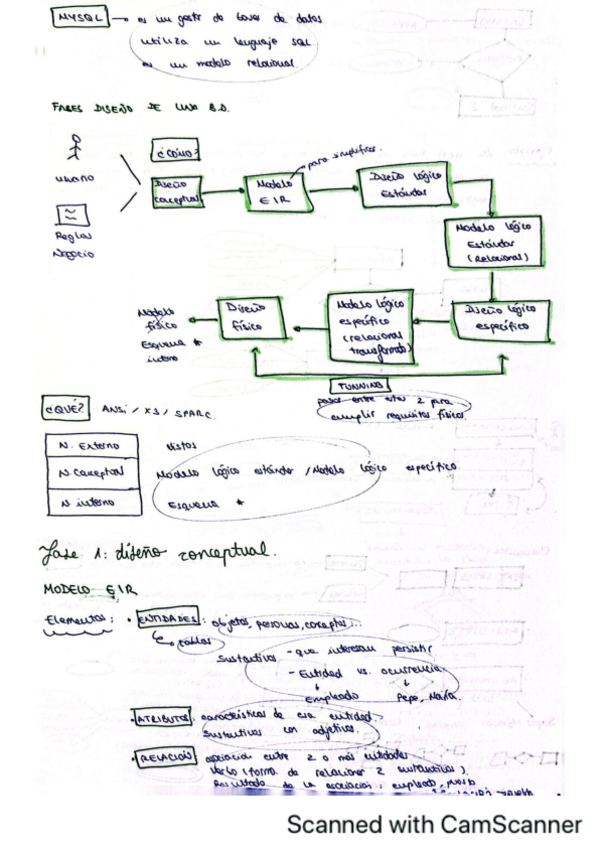 MYSQL → es un gestor de bases de datos
utiliza un lenguaje SQL
es un modelo relacional.
FASES DISEÑO DE UNA B.D.
¿CÓMO?
para simplificar.
usuario
Reglas
Negocio
Diseño
conceptual
Modelo
E/R
Diseño lógico
Estándar
Modelo lógico
Estándar
(Relacional)
Diseño lógico
específico
Modelo lógico
específico
(relacional
transformado)
Diseño
físico
Modelo
físico
Esquema *
interno
TUNNING
pasos entre estos 2 para
cumplir requisitos físicos.
¿QUÉ? ANSI / X3 / SPARC.
N. Externo vistas
N. Conceptual Modelo lógico estándar / Modelo lógico específico.
N. interno Esquema *
Fase 1: diseño conceptual.
MODELO E/R
Elementos: • ENTIDADES: objetos, personas, conceptos...
tablas
Sustantivos - que interesan persistir
- Entidad vs. ocurrencia.
Empleado Pepe, María.
• ATRIBUTOS: características de esa entidad.
Sustantivos con adjetivos.
• RELACIÓN asociación entre 2 o más entidades
Verbo (forma de relacionar 2 sustantivos).
Resultado de la asociación: empleado,
Scanned with CamScanner